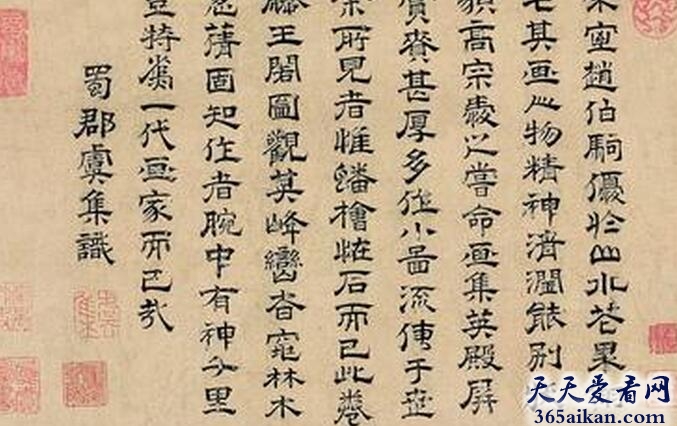 宋室趙伯駒優於山水花果
毛其画必物精神清潤能別
貌高宗爱之嘗命画集英殿屏
賞賚甚厚多作小啚流傳于世
所見者惟蟠檜恠石而已此卷
滕王閣圖觀其峰巒沓窕林木
蒨固知作者腕中有神千里
豈特為一代画家而已哉
蜀郡虞集識
天天爱看网
365aikan.com